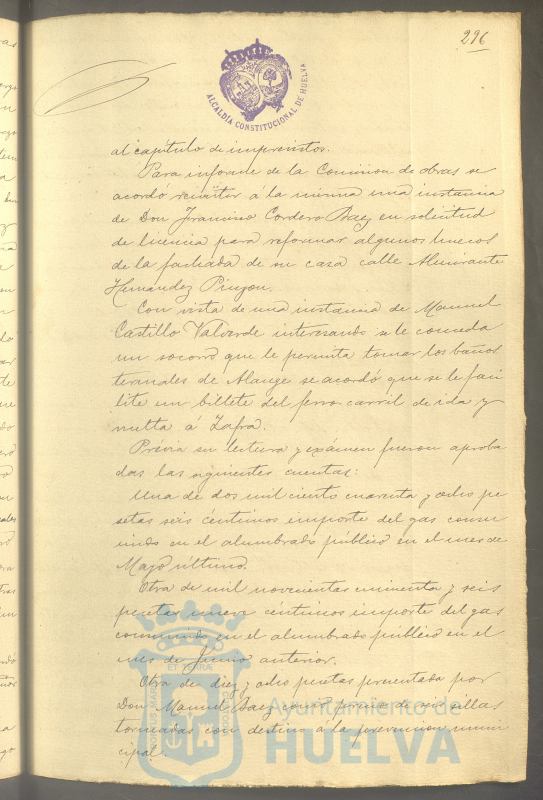 296
ALCALDÍA CONSTITUCIONAL DE HUELVA
al capitulo de imprevistos.
Para informe de la Comision de obras se
acordó remitir á la misma una instancia
de Don Francisco Cordero Baez en solicitud
de licencia para reformar algunos huecos
de la fachada de su casa calle Almirante
Hernandez Pinzon.
Con vista de una instancia de Manuel
Castillo Valverde interesando se le conceda
un socorro que le permita tomar los baños
termales de Alange se acordó que se le faci
lite un billete del ferro carril de ida y
vuelta á Zafra.
Prévia su lectura y exámen fueron aproba
das las siguientes cuentas:
Una de dos mil ciento cuarenta y ocho pe
setas seis céntimos importe del gas consu
mido en el alumbrado público en el mes de
Mayo último.
Otra de mil novecientas cincuenta y seis
pesetas nueve céntimos importe del gas
consumido en el alumbrado público en el
mes de Junio anterior.
Otra de diez y ocho pesetas presentada por
Don Manuel Baez como precio de seis sillas
torneadas con destino á la prevencion muni
cipal.
Ayuntamiento de
HUELVA